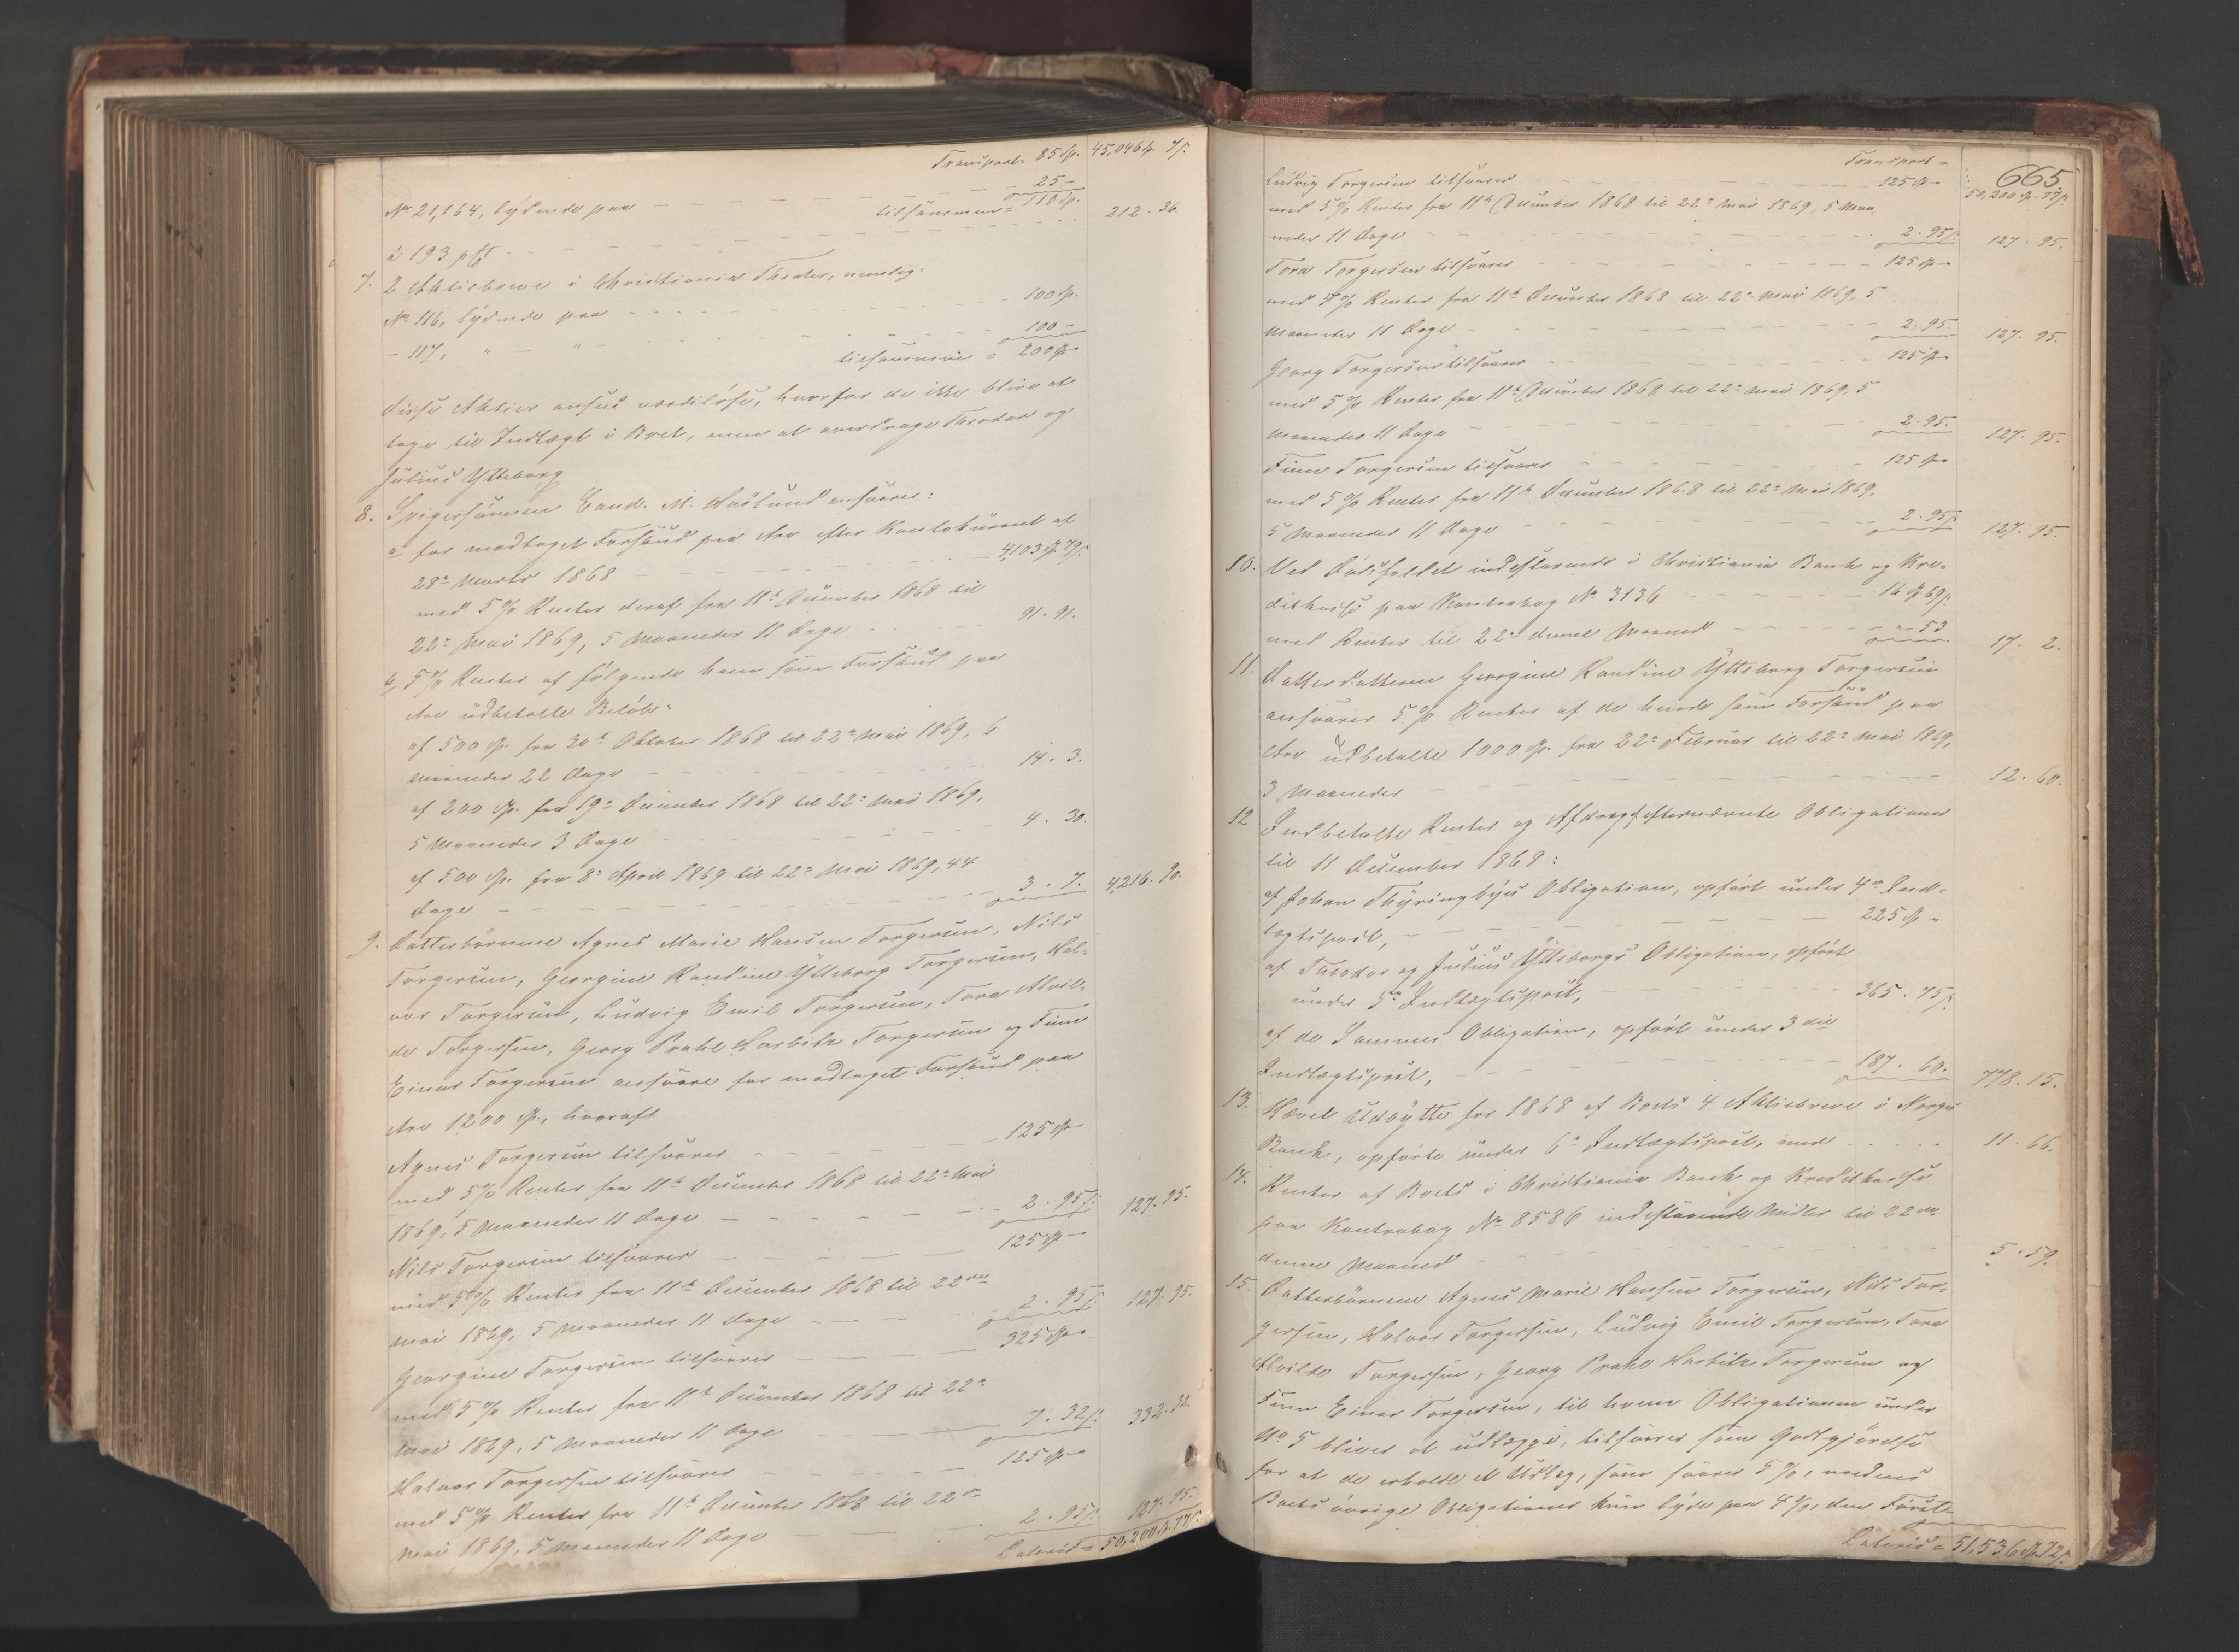 Transport = 85 Sp. 45,046 Sp. 7 s.
No 21,164, lydende paa 25 -
tilsammen = 110 Sp.
à 193 pCt 212. 36.
7. 2 Aktiebreve i Christiania Theater, nemlig:
No 116, lydende paa 100 Sp.
- 117, " - " - 100 -
tilsammen = 200 Sp -
disse Aktier ansees værdiløse, hvorfor de ikke blive at
tage til Indtægt i Boet, men at overdrage Theodor og
Julius Ytteborg
8. Svigersønnen Cand. M. Haslund ansvarer:
a, for modtaget Forskud paa Arv efter Kontokurant af
28de Marts 1868 4,103 Sp. 79 s.
med 5 % Renter deraf fra 11te December 1868 til
22de Mai 1869, 5 Maaneder 11 Dage 91. 91.
b, 5 % Renter af følgende ham som Forskud paa
Arv udbetalte Beløb:
af 500 Sp. fra 30te Oktober 1868 til 22de Mai 1869, 6
Maaneder 22 Dage 14. 3.
af 200 Sp. fra 19de December 1868 til 22de Mai 1869,
5 Maaneder 3 Dage 4. 30.
af 500 Sp. fra 8de April 1869 til 22de Mai 1869, 44
Dage 3. 7. 4,216. 90.
9. Datterbørnene Agnes Marie Hansen Torgersen, Nils
Torgersen, Georgine Randine Ytteborg Torgersen, Hal-
vor Torgersen, Ludvig Emil Torgersen, Tora Alvil-
de Torgersen, Georg Prahl Harbitz Torgersen og Finn
Einar Torgersen ansvare for modtaget Forskud paa
Arv 1200 Sp., hvoraf
Agnes Torgersen tilsvarer 125 Sp -
med 5 % Renter fra 11te December 1868 til 22de Mai
1869, 5 Maaneder 11 Dage 2. 95 s. 127. 95.
Nils Torgersen tilsvarer 125 Sp -
med 5 % Renter fra 11te December 1868 til 22de
Mai 1869, 5 Maaneder 11 Dage 2. 95 s. 127. 95.
Georgine Torgersen tilsvarer 325 Sp -
med 5 % Renter fra 11te December 1868 til 22de
Mai 1869, 5 Maaneder 11 Dage 7. 32 s. 332. 32.
Halvor Torgersen tilsvarer 125 Sp -
med 5 % Renter fra 11te December 1868 til 22de
Mai 1869, 5 Maaneder 11 Dage 2. 95 s. 127. 95.
Lateris = 50,200 Sp. 77 s.
665
Transport = 50,200 Sp. 77 s.
Ludvig Torgersen tilsvarer 125 Sp -
med 5 % Renter fra 11te December 1868 til 22de Mai 1869, 5 Maa-
neder 11 Dage 2. 95 s. 127. 95.
Tora Torgersen tilsvarer 125 Sp -
med 5 % Renter fra 11te December 1868 til 22de Mai 1869, 5
Maaneder 11 Dage 2. 95. 127. 95.
Georg Torgersen tilsvarer 125 Sp -
med 5 % Renter fra 11te December 1868 til 22de Mai 1869, 5
Maaneder 11 Dage 2. 95. 127. 95.
Finn Torgersen tilsvarer 125 Sp -
med 5 % Renter fra 11te December 1868 til 22de Mai 1869,
5 Maaneder 11 Dage 2. 95 s. 127. 95.
10. Ved Dødsfaldet indestaaende i Christiania Bank og Kre-
ditkasse paa Kontrabog No 3136 16 Sp 69 s.
med Renter til 22de denne Maaned " - 53 17. 2.
11. Datterdatteren Georgine Randine Ytteborg Torgersen
ansvarer 5 % Renter af de hende som Forskud paa
Arv udbetalte 1000 Sp. fra 22de Februar til 22de Mai 1869,
3 Maaneder 12. 60.
12. Indbetalte Renter og Afdrag efternævnte Obligationer
til 11 December 1868:
af Johan Thyringbyes Obligation, opført under 4de Ind-
tægtspost, 225 Sp "
af Theodor og Julius Ytteborgs Obligation, opført
under 5te Indtægtspost, 365. 75 s.
af de Sammes Obligation, opført under 3die
Indtægtspost, 187. 60. 778. 15.
13. Hævet Udbytte for 1868 af Boets 4 Aktiebreve i Norges
Bank, opførte under 6te Indtægtspost, med 11. 66.
14. Renter af Boets i Christiania Bank og Kreditkasse
paa Kontrabog No 8586 indestaaende Midler til 22de
denne Maaned 5. 59.
15. Datterbørnene Agnes Marie Hansen Torgersen, Nils Tor-
gersen, Halvor Torgersen, Ludvig Emil Torgersen, Tora
Alvilde Torgersen, Georg Prahl Harbitz Torgersen og
Finn Einar Torgersen, til hvem Obligationen under
No 5 bliver at udlægge, tilsvarer som Godtgjørelse
for at de erholde et Udlæg, som svarer 5 %, medens
Boets øvrige Obligationer kun lyde paa 4 %, den Første
Lateris = 51,536 Sp. 72 s.